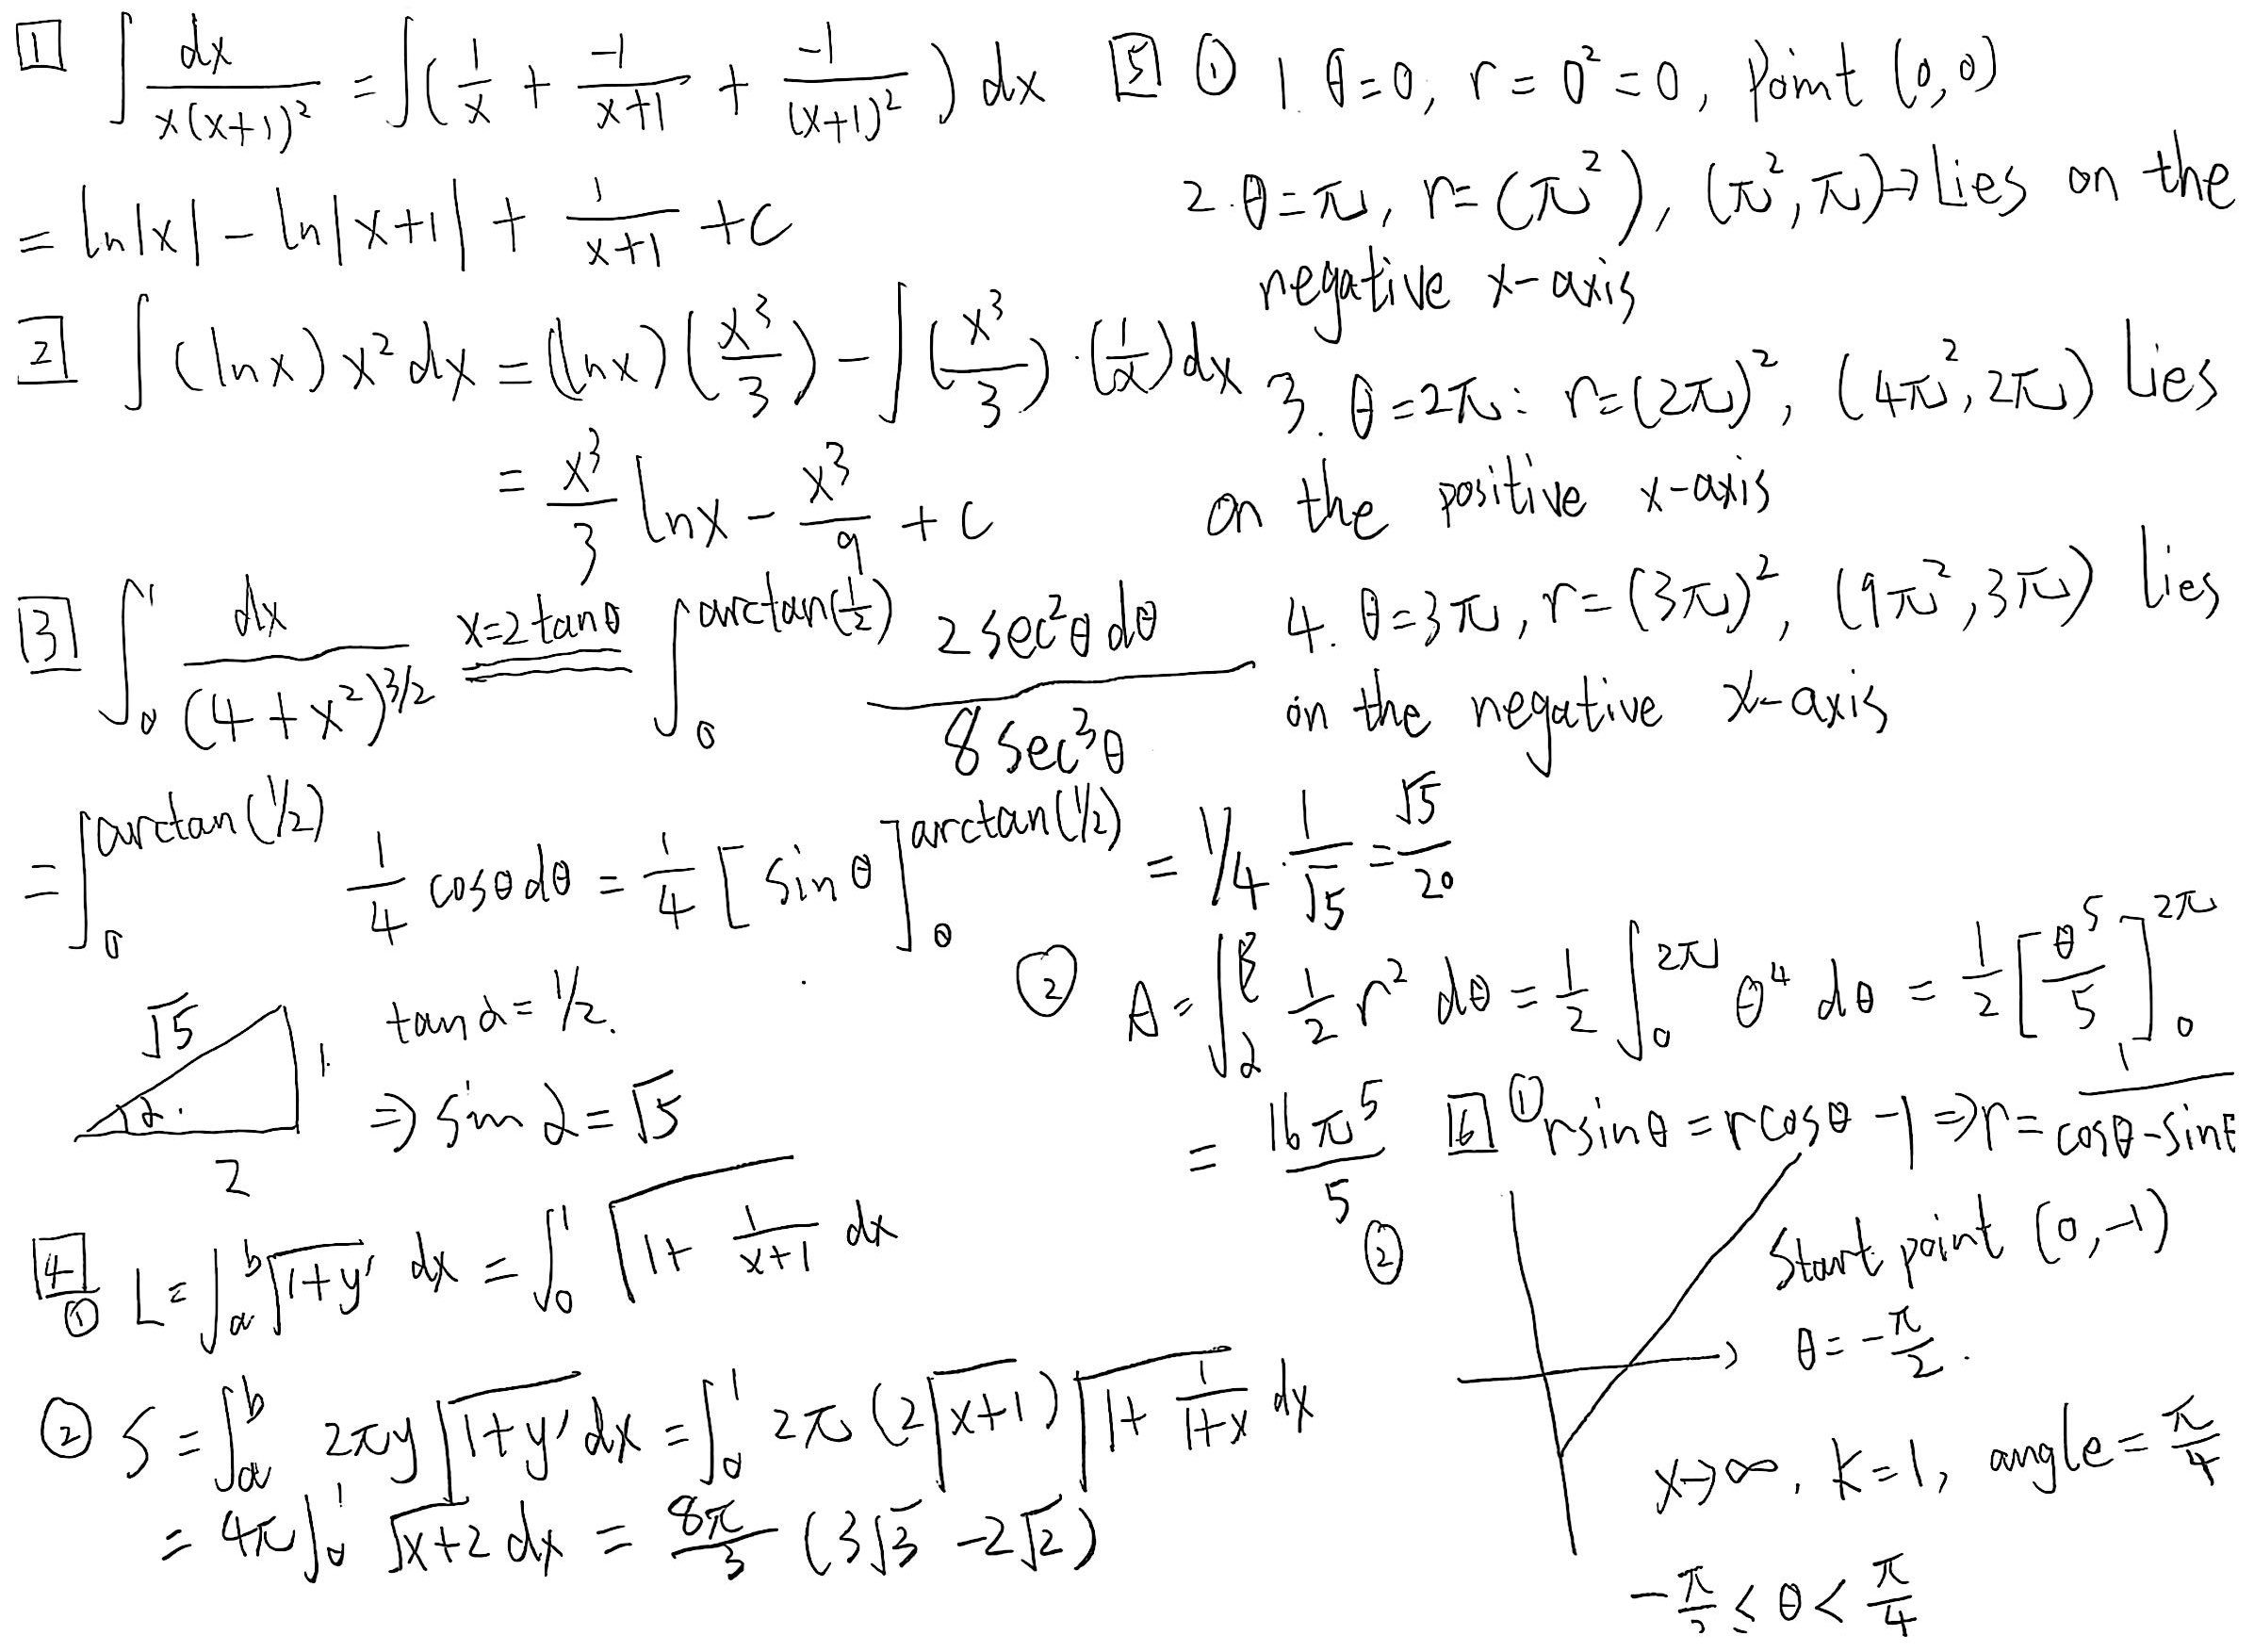 [1] ∫ dx/(x(x+1)²) = ∫(1/x + -1/(x+1) + -1/(x+1)²) dx
= ln|x| - ln|x+1| + 1/(x+1) + C
[2] ∫(lnx) x² dx = (lnx)(x³/3) - ∫(x³/3)·(1/x) dx
= x³/3 lnx - x³/9 + C
[3] ∫₀¹ dx/(4+x²)^(3/2) x=2tanθ ∫₀^arctan(1/2) 2sec²θdθ/8sec³θ
= ∫₀^arctan(1/2) 1/4 cosθdθ = 1/4 [sinθ]₀^arctan(1/2) = 1/4 · 1/√5 = √5/20
√5 1. α. 2
tanα = 1/2.
⇒ sinα = √5
[4] ① L = ∫ₐᵇ √(1+y') dx = ∫₀¹ √(1 + 1/(x+1)) dx
② S = ∫ₐᵇ 2πy √(1+y') dx = ∫₀¹ 2π (2√(x+1)) √(1 + 1/(1+x)) dx
= 4π ∫₀¹ √(x+2) dx = 8π/3 (3√3 - 2√2)
[5] ① 1. θ=0, r = 0² = 0, Point (0,0)
2. θ=π, r = (π²), (π², π) → Lies on the
negative x-axis
3. θ=2π: r=(2π)², (4π², 2π) Lies
on the positive x-axis
4. θ=3π, r=(3π)², (9π², 3π) lies
on the negative x-axis
② A = ∫_α^β 1/2 r² dθ = 1/2 ∫₀^2π θ⁴ dθ = 1/2 [θ⁵/5]₀^2π
= 16π⁵/5
[6] ① rsinθ = rcosθ - 1 ⇒ r = 1/(cosθ - sinθ)
② Start point (0,-1)
θ = -π/2.
x→∞, k=1, angle = π/4
-π/2 ≤ θ < π/4